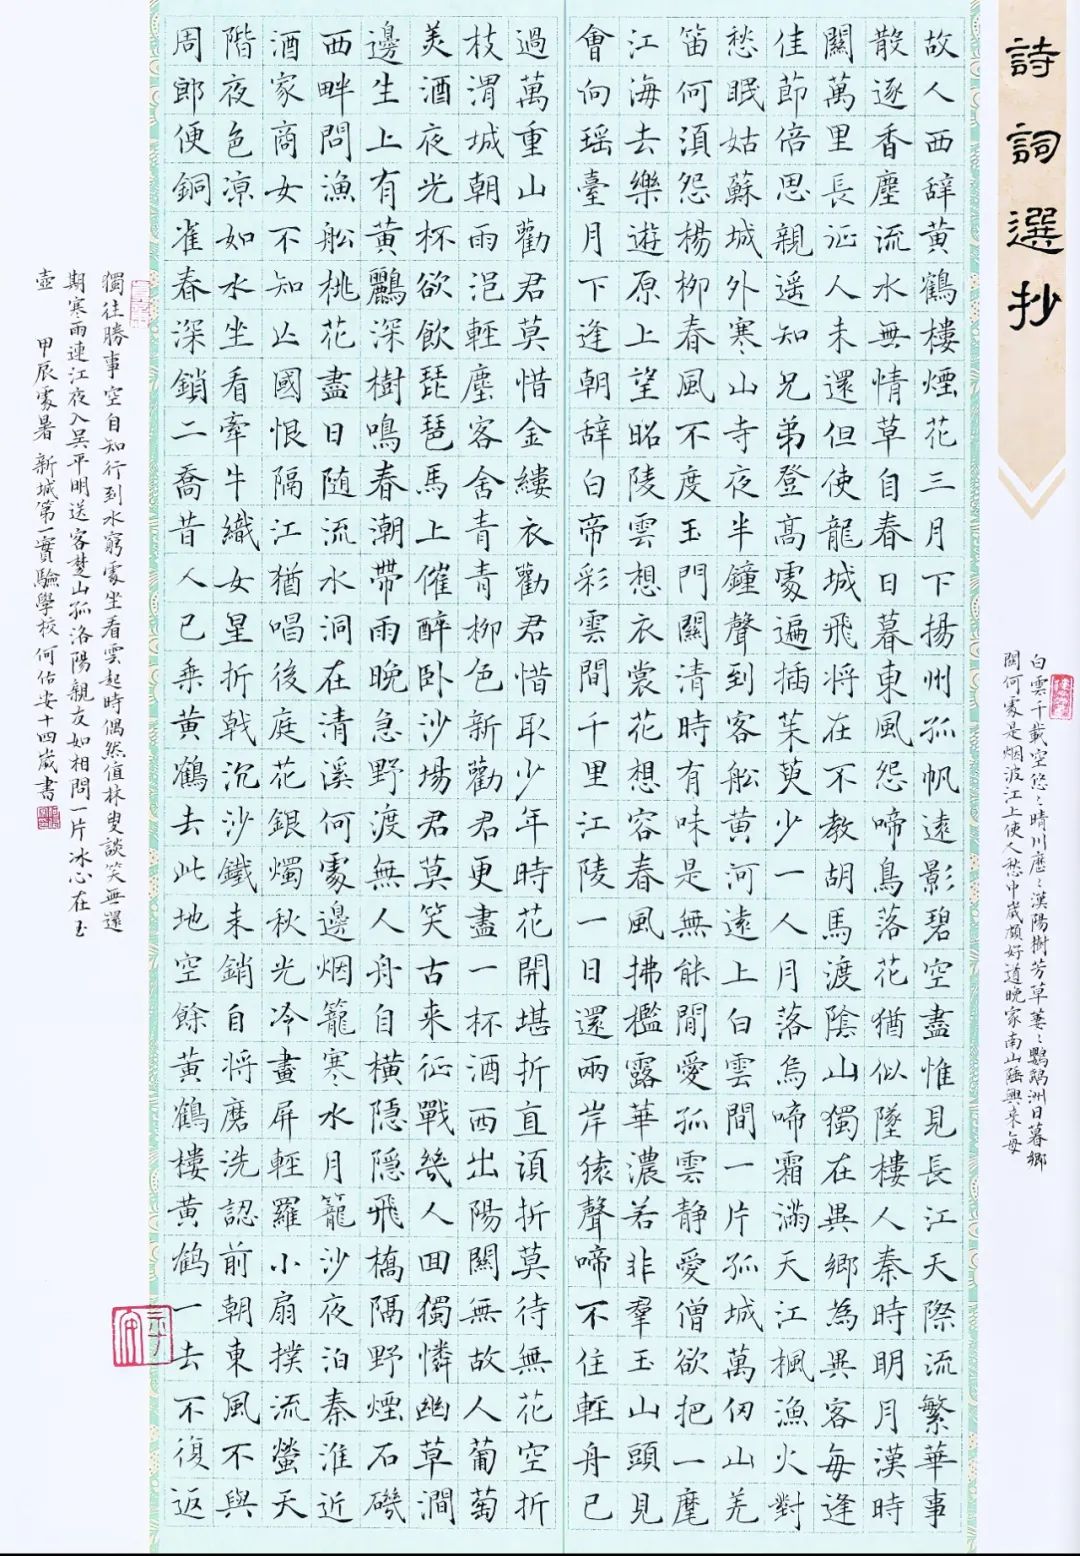 詩詞選抄
故人西辞黄鶴樓煙花三月下揚州孤帆遠影碧空盡惟見長江天際流繁華事
散逐香塵流水無情草自春日暮東風怨啼鳥落花猶似墜樓人秦時明月漢時
關萬里長征人未還但使龍城飛将在不教胡馬渡陰山獨在異鄉為異客每逢
佳節倍思親遥知兄弟登高處遍插茱萸少一人月落烏啼霜滿天江楓漁火對
愁眠姑蘇城外寒山寺夜半鐘聲到客船黄河遠上白雲間一片孤城萬仞山羌
笛何須怨楊柳春風不度玉門關清時有味是無能閒愛孤雲静愛僧欲把一麾
江海去樂遊原上望昭陵雲想衣裳花想容春風拂檻露華濃若非羣玉山頭見
會向瑶臺月下逢朝辞白帝彩雲間千里江陵一日還兩岸猿聲啼不住輕舟已
過萬重山勸君莫惜金縷衣勸君惜取少年時花開堪折直須折莫待無花空折
枝渭城朝雨浥輕塵客舍青青柳色新勸君更盡一杯酒西出陽關無故人葡萄
美酒夜光杯欲飲琵琶馬上催醉卧沙場君莫笑古来征戰幾人回獨憐幽草澗
邊生上有黄鸝深樹鳴春潮帶雨晚急野渡無人舟自橫隱隱飛橋隔野煙石磯
西畔問漁船桃花盡日随流水洞在清溪何處邊烟籠寒水月籠沙夜泊秦淮近
酒家商女不知亡國恨隔江猶唱後庭花銀燭秋光冷畫屏輕羅小扇撲流螢天
階夜色凉如水坐看牽牛織女星折戟沉沙鐵未銷自将磨洗認前朝東風不與
周郎便銅雀春深鎖二喬昔人已乘黄鶴去此地空餘黄鶴樓黄鹤一去不復返
白雲千載空悠〻晴川歷〻漢陽樹芳草萋〻鸚鵡洲日暮鄉
關何處是烟波江上使人愁中歲頗好道晚家南山陲興来每
獨往勝事空自知行到水窮處坐看雲起時偶然值林叟談笑無還
期寒雨連江夜入吴平明送客楚山孤洛陽親友如相問一片冰心在玉
壺　甲辰處暑新城第一實驗學校何佑安十四歲書